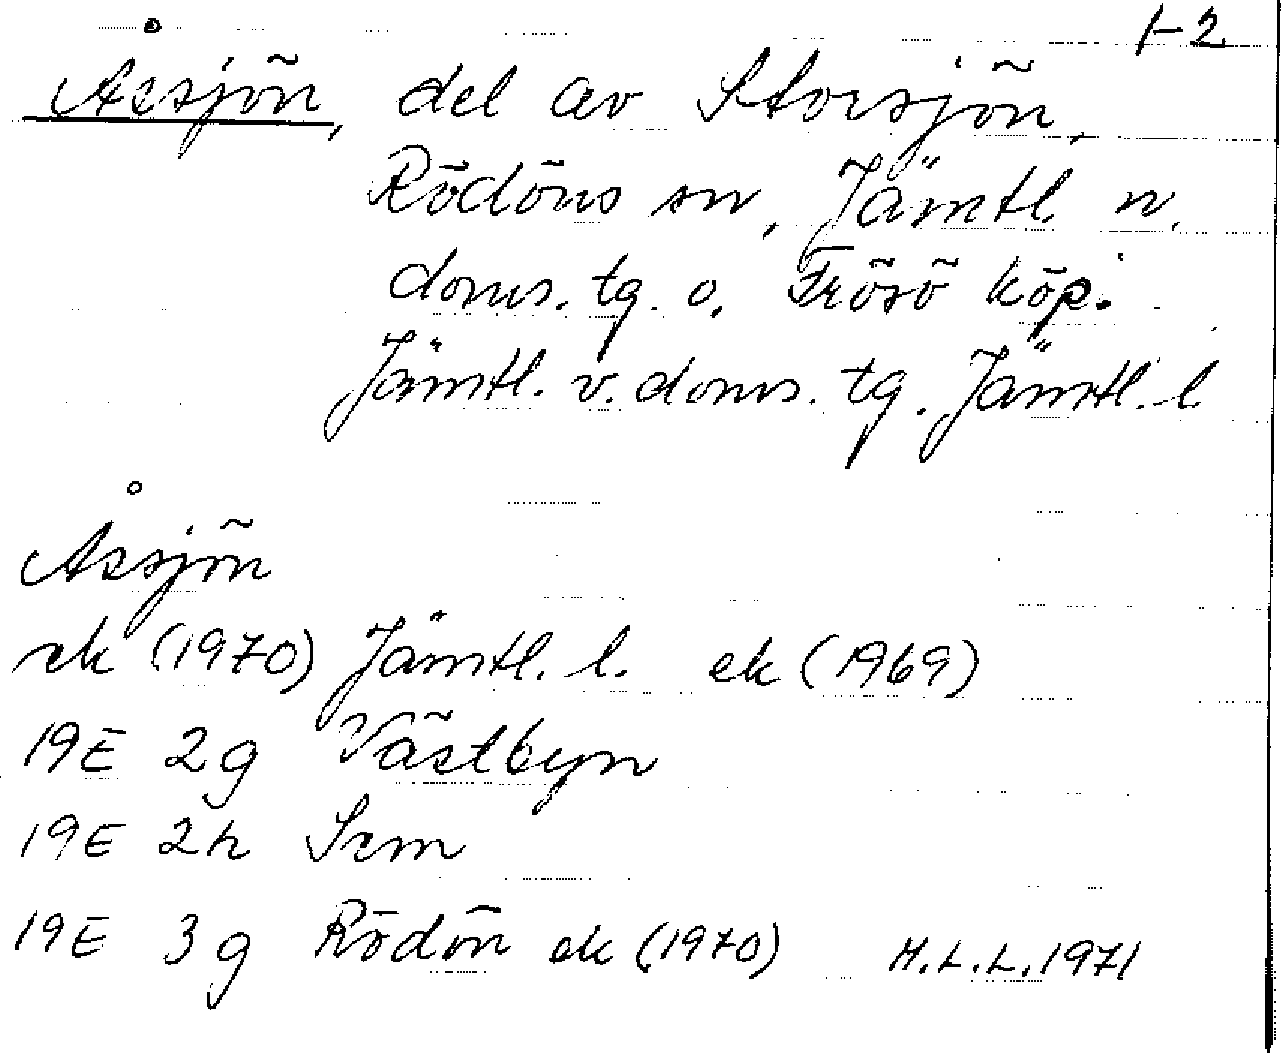 1-2
Åssjön, del av Storsjön,
Rödöns sn, Jämtl. n.
doms. tg. o. Frösö köp.
Jämtl. v. doms. tg. Jämtl. l
Åssjön
ek (1970) Jämtl. l. ek (1969)
19E 2g Västbyn
19E 2h Sem
19E 3g Rödön ek (1970) H.L.L. 1971